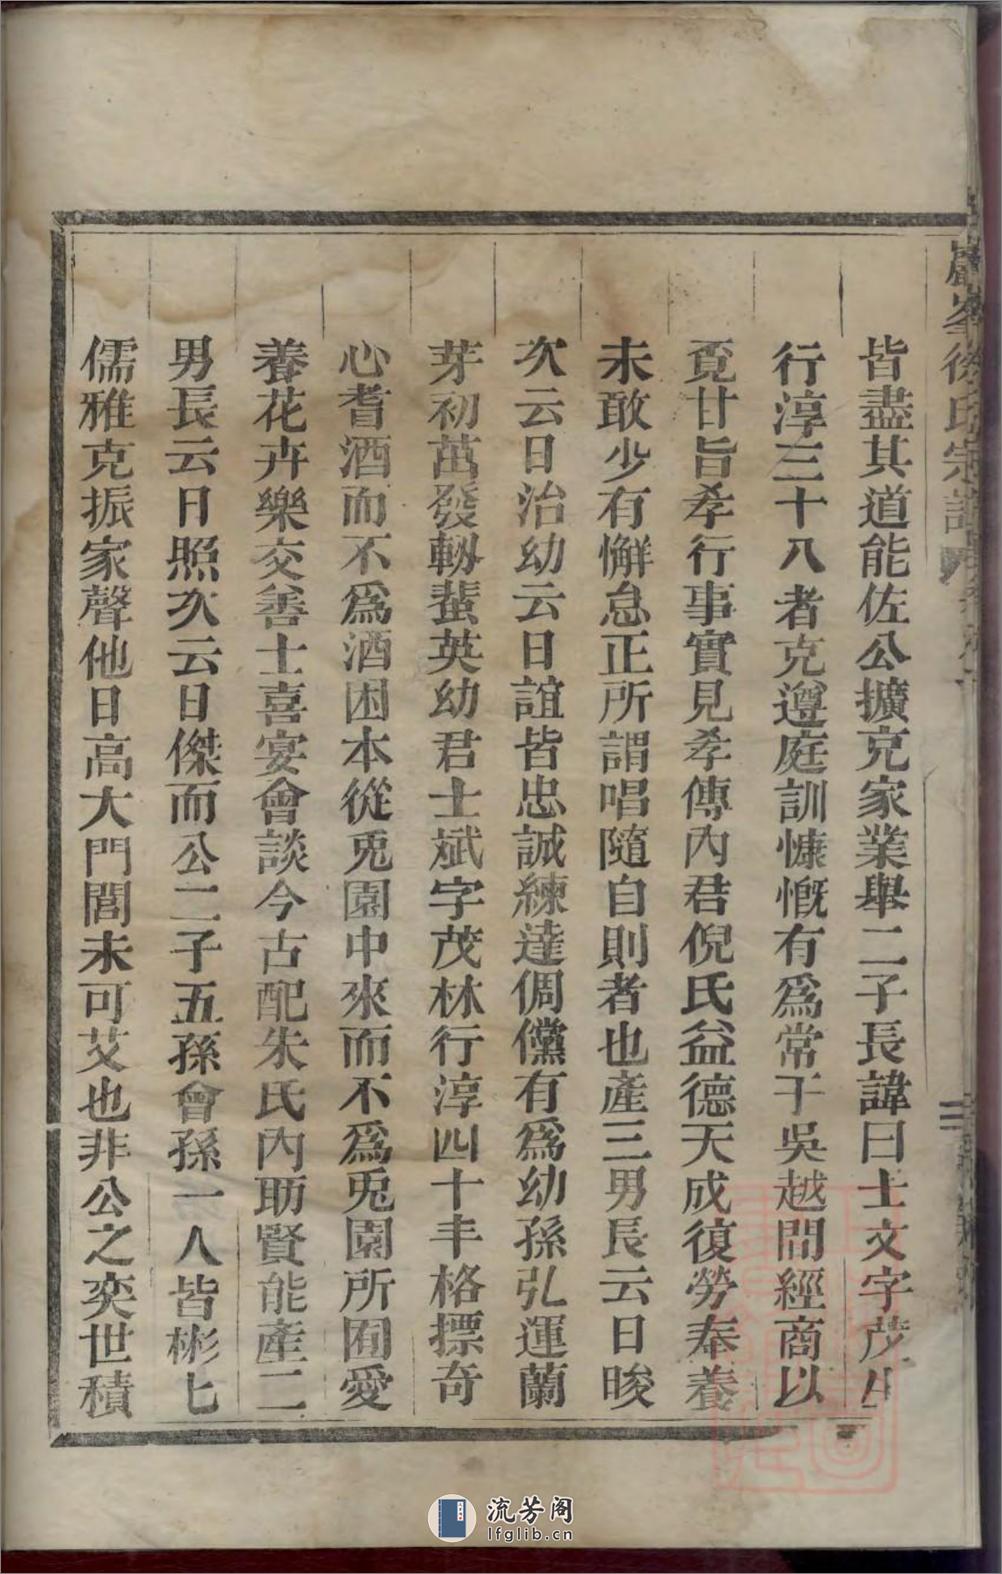 皆盡其道能佐公擴充家業舉二子長諱曰士文字茂
行淳三十八者克遵庭訓慷慨有爲常于吳越間經商以
覔甘旨孝行事實見孝傳內君倪氏益德天成復勞奉養
未敢少有懈怠正所謂唱隨自則者也產三男長云日晙
次云日治幼云日誼皆忠誠練達倜儻有爲幼孫弘運蘭
芽初萬發軔蜚英幼君士斌字茂林行淳四十丰格摽奇
心耆酒而不爲酒困本從兎園中來而不爲兎園所囿愛
養花卉樂交善士喜宴會談今古配朱氏內助賢能產二
男長云日照次云日傑而公二子五孫會孫一人皆彬七
儒雅克振家聲他日高大門閭未可艾也非公之奕世積
徐氏宗譜
流芳阁
lfglib.cn